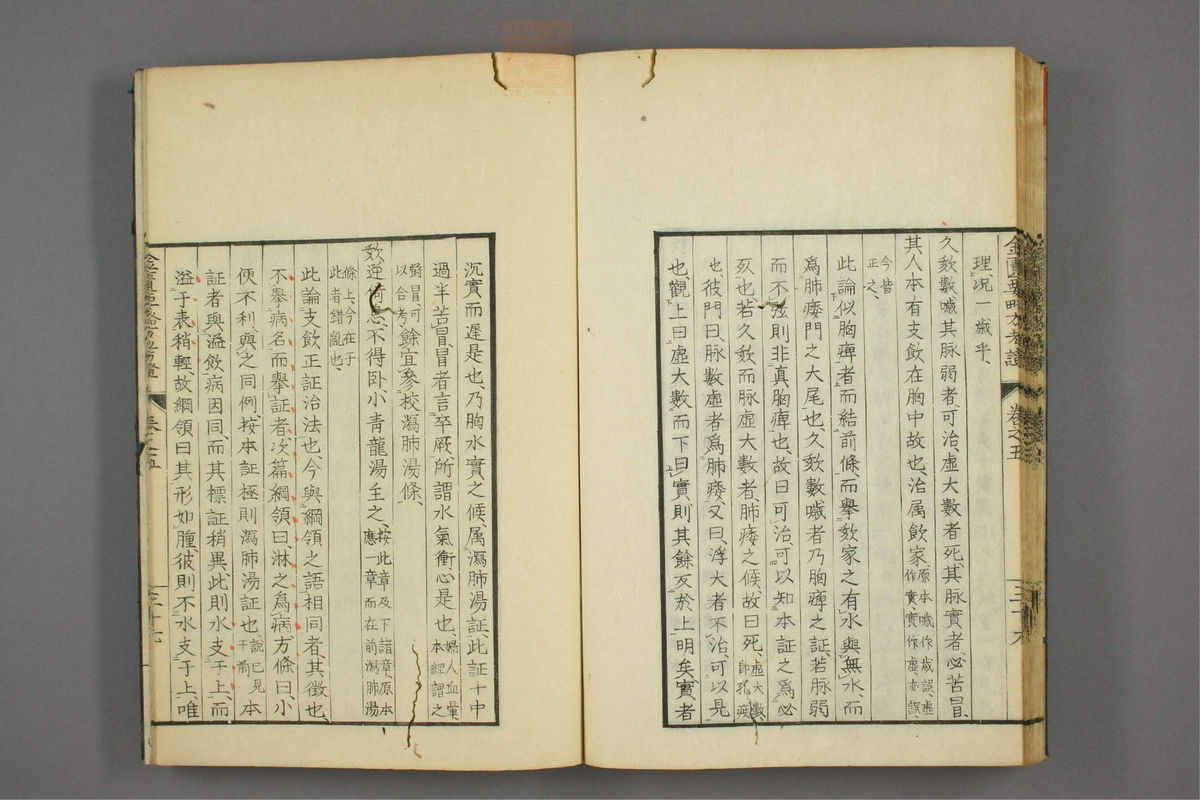 理、况一歲乎、
久欬數嘁其脉弱者、可治、虛大數者死、其脉實者、必苦冒、
其人本有支飲在胸中故也、治属飲家、原本嘁作歲誤、虛作實、實作虛、亦誤、
今皆正之、
此論似胸痺者、而結前條、而擧欬家之有水與無水、而
爲肺痿門之大尾也、久欬數嘁者乃胸痺之証、若脉弱
而不弦則非真胸痺也、故曰可治、可以知本証之爲必
死也、若久欬而脉虛大數者、肺痿之候、故曰死、虛大數即肺痿
也、彼門曰、脉數虛者爲肺痿、又曰、浮大者不治、可以見
也、觀上曰虛大數而下曰實、則其餘反於上明矣、實者
卷之五
沉實而遲是也、乃胸水實之候、属瀉肺湯証、此証十中
過半苦冒、冒者言卒厥、所謂水氣衝心是也、婦人血暈、本經謂之
鬱冒、可以合考、餘宜參校瀉肺湯條、
欬逆倚息、不得卧小青龍湯主之、按此章及下諸章、原本應一章而在前瀉肺湯
條上、今在于此者錯亂也、
此論支飲正証治法也、今與綱領之語相同者、其徵也、
不擧病名而擧証者、次篇綱領曰淋之爲病、方條曰、小
便不利、與之同例、按本証極則瀉肺湯証也、說已見于前、本
証者與溢飲病因同、而其標証稍異、此則水支于上、而
溢于表稍輕故綱領曰其形如腫、彼則不水支于上、唯
卷之五